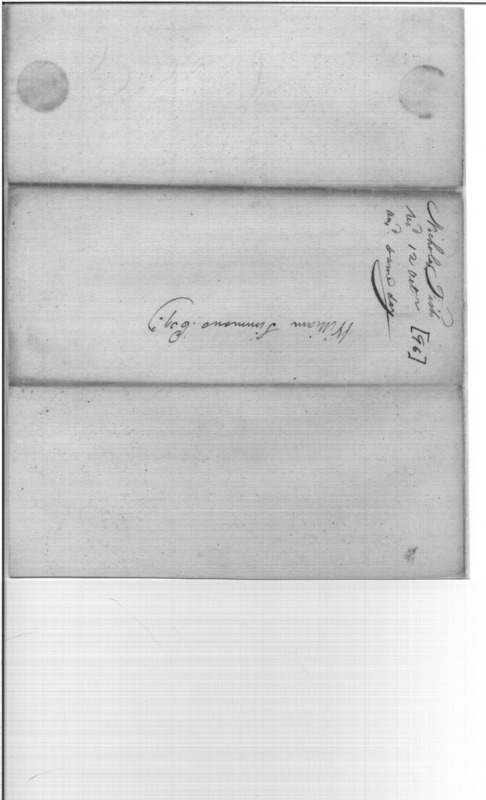 Nicholas Fish
recd 12 octr [96]
ansd same day
William Simmons Esqr.